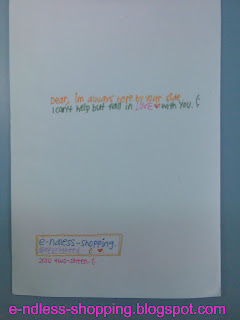 Dear, I'm always here by your side.
I can't help but fall in LOVE with you. :)
e-ndless-shopping.
2010
e-ndless-shopping.blogspot.com